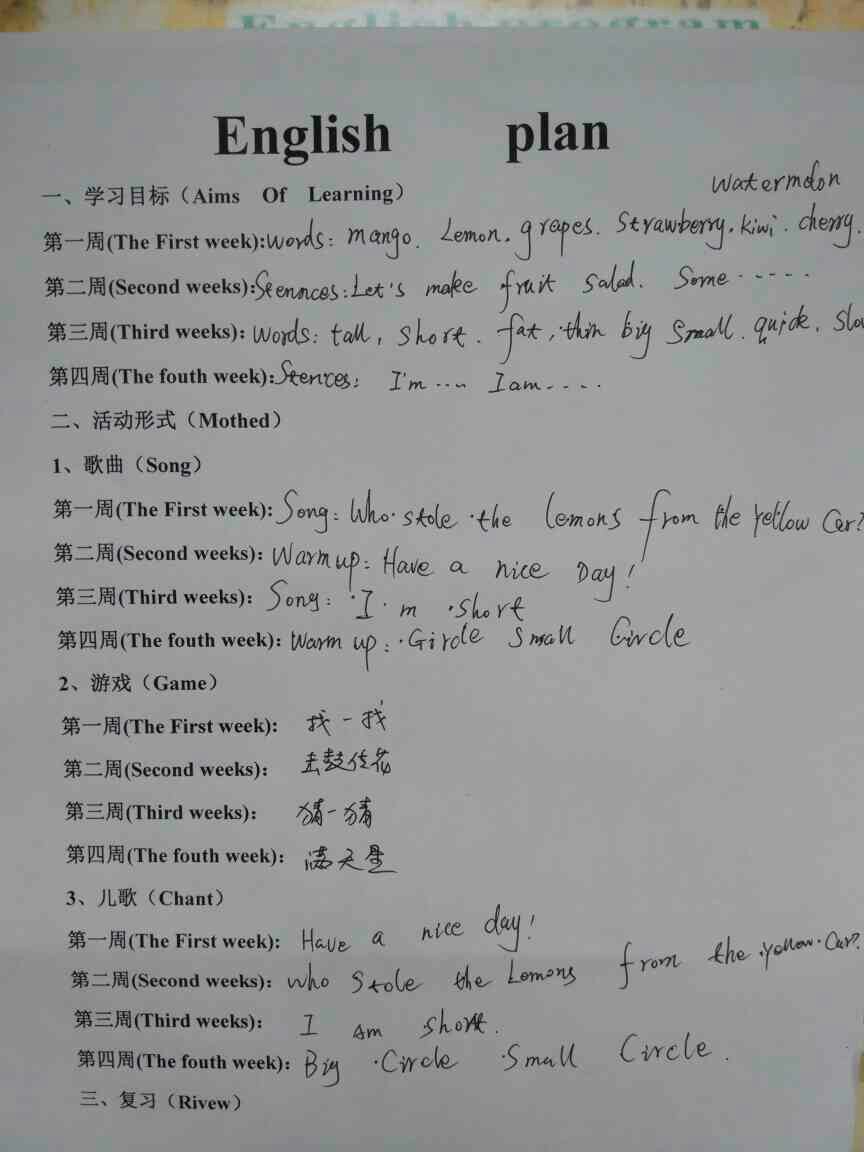 English program
English plan
一、学习目标（Aims Of Learning）
watermelon
第一周(The First week):words: mango. Lemon. grapes. Strawberry. kiwi. cherry.
第二周(Second weeks):Stennces:Let's make fruit salad. Some ......
第三周(Third weeks): Words: tall, short. fat, thin big small. quick. slow
第四周(The fouth week):Stences: I'm .... I am.....
二、活动形式（Mothed）
1、歌曲（Song）
第一周(The First week): Song: Who stole the lemons from the yellow Car?
第二周(Second weeks): Warm up: Have a nice Day!
第三周(Third weeks): Song: I'm short
第四周(The fouth week): Warm up: Girde small Circle
2、游戏（Game）
第一周(The First week): 找一找
第二周(Second weeks): 击鼓传花
第三周(Third weeks): 猜一猜
第四周(The fouth week): 满天星
3、儿歌（Chant）
第一周(The First week): Have a nice day!
第二周(Second weeks): who stole the Lemons from the yellow Car?
第三周(Third weeks): I am short.
第四周(The fouth week): Big Circle Small Circle.
三、复习（Rivew）